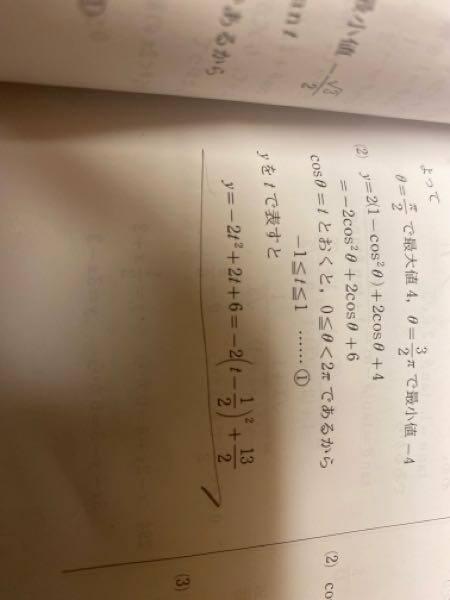 よって
θ=π/2 で最大値 4, θ=3/2π で最小値 −4
(2) y=2(1−cos²θ)+2cosθ+4
=−2cos²θ+2cosθ+6
cosθ=t とおくと, 0≦θ<2π であるから
−1≦t≦1 ……①
y を t で表すと
y=−2t²+2t+6=−2(t−1/2)²+13/2
小値 −√3/2
であるから
(2) co
(3)